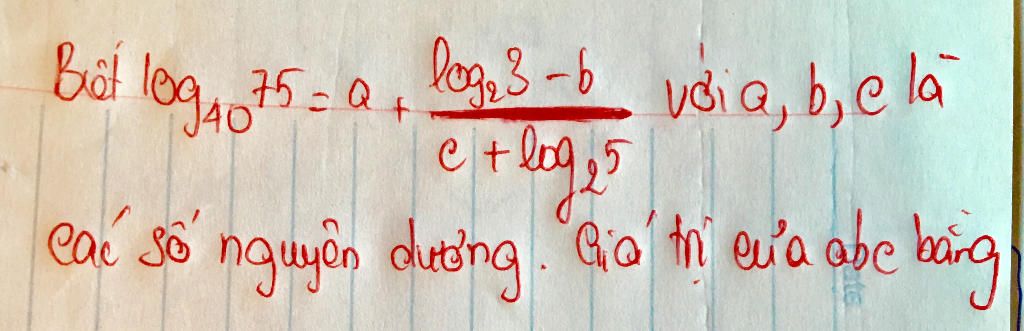 Biết log₄₀75 = a + (log₂3 - b)/(c + log₂5) với a, b, c là
các số nguyên dương. Giá trị của abc bằng